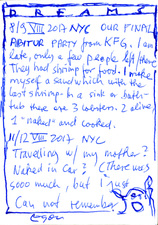 DREAMS
8/9 VIII 2017 NYC OUR FINAL
ABITUR PARTY from KFG. I am
late, only a few people left there.
They had shrimp for food. I make
myself a sandwich with the
last shrimp. In a sink or bath-
tub there are 3 wesen. 2 alive,
1 "naked" and cooked.
11/12 VIII 2017 NYC
Travelling w/ my mother?
Naked in car? (There was
sooo much, but I just
can not remember